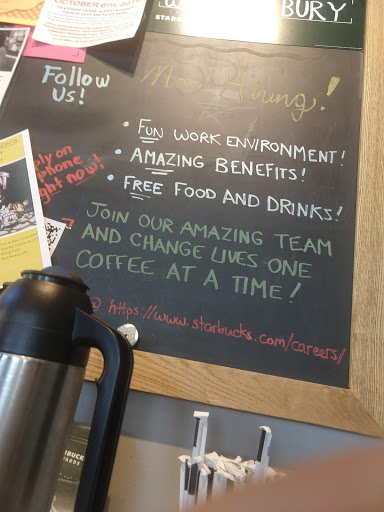 OCTOBER 6TH, 201
BURY
STARB
Follow
Us!
Now Hiring!
• FUN WORK ENVIRONMENT!
• AMAZING BENEFITS!
• FREE FOOD AND DRINKS!
ply on
phone
ght now!
JOIN OUR AMAZING TEAM
AND CHANGE LIVES ONE
COFFEE AT A TIME!
@ https://www.starbucks.com/careers/